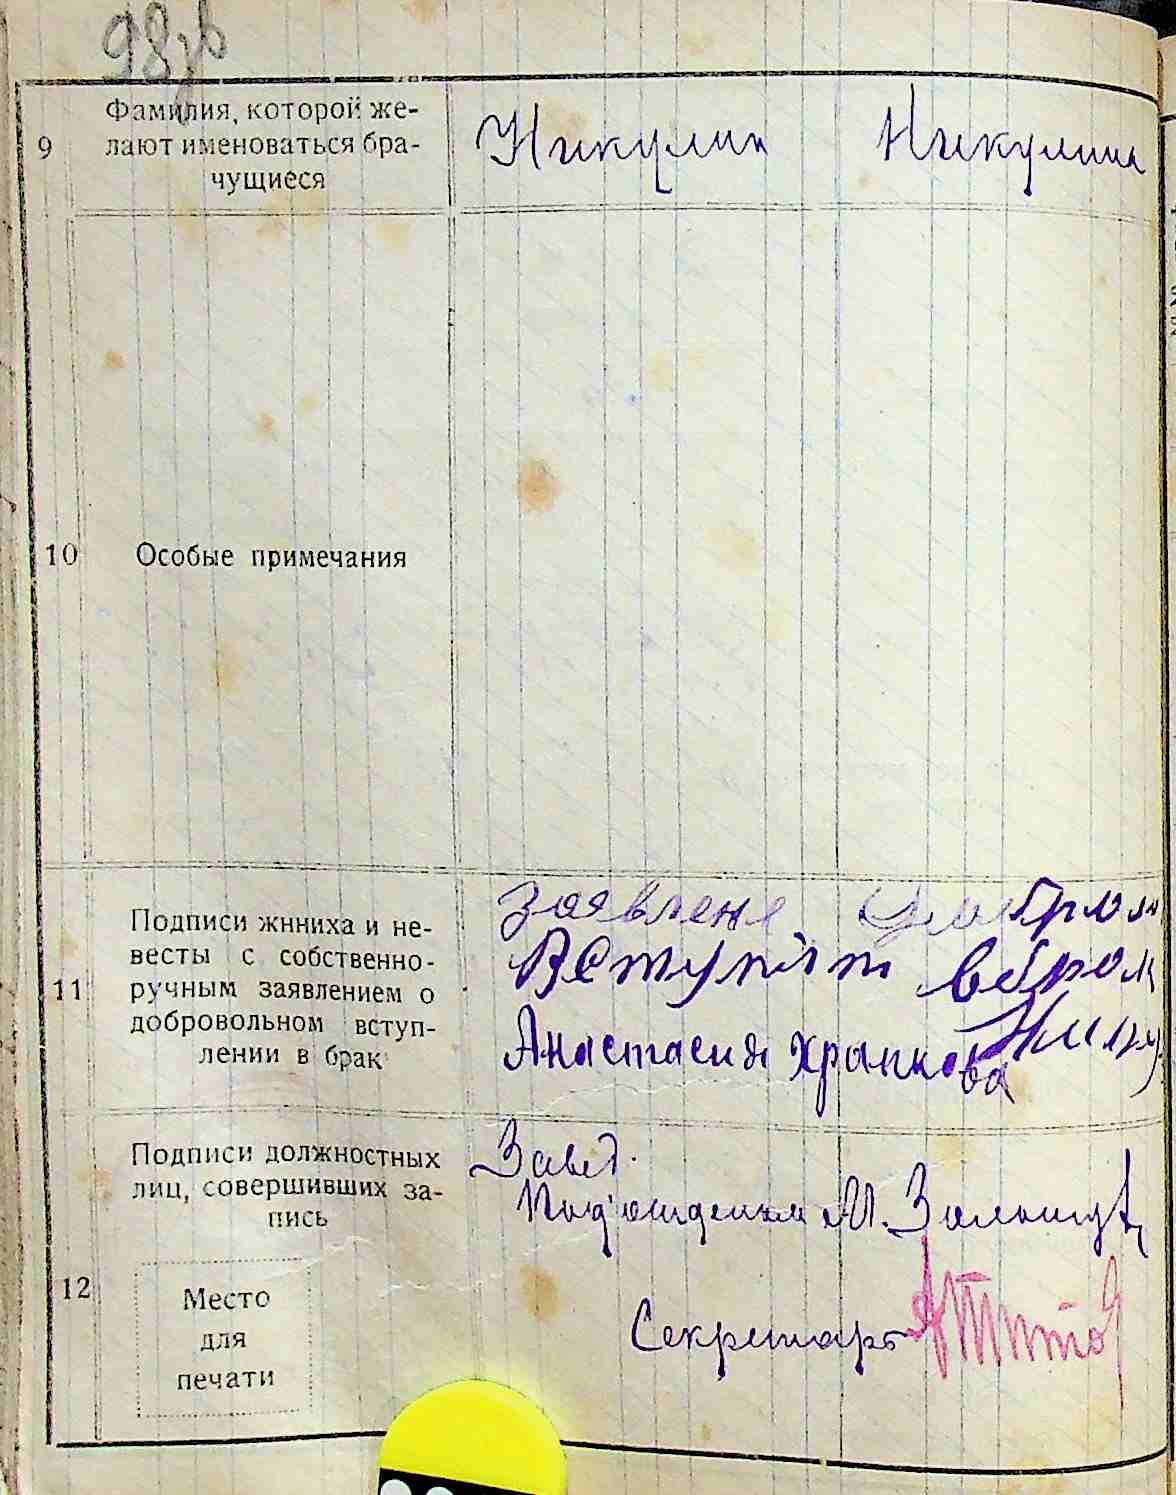 98
9 Фамилия, которой же-
лают именоваться бра-
чущиеся
Никулин Никулина
10 Особые примечания
11 Подписи жнниха и не-
весты с собственно-
ручным заявлением о
добровольном вступ-
лении в брак
Вступит
Анастасия Храпкова
12 Подписи должностных
лиц, совершивших за-
пись
Завед.
М.
Секретарь
Место
для
печати